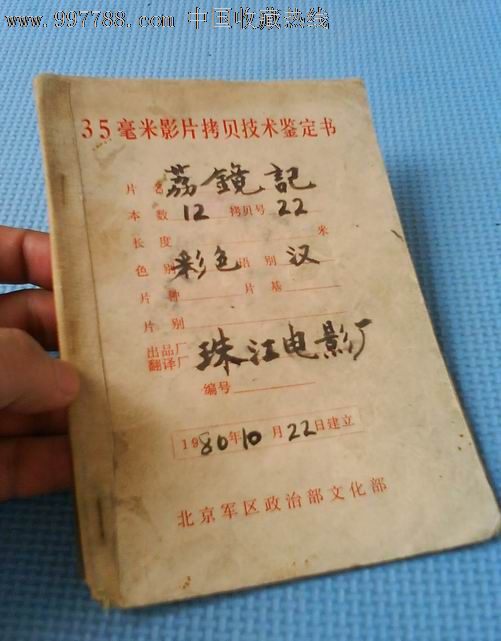 www.997788.com 中国收藏热线
35毫米影片拷贝技术鉴定书
片名 荔鏡記
本数 12 拷贝号 22
长度 米
色别 彩色 语别 汉
片种 片基
片别
出品厂
翻译厂 珠江电影厂
编号
1980年10月22日建立
北京军区政治部文化部